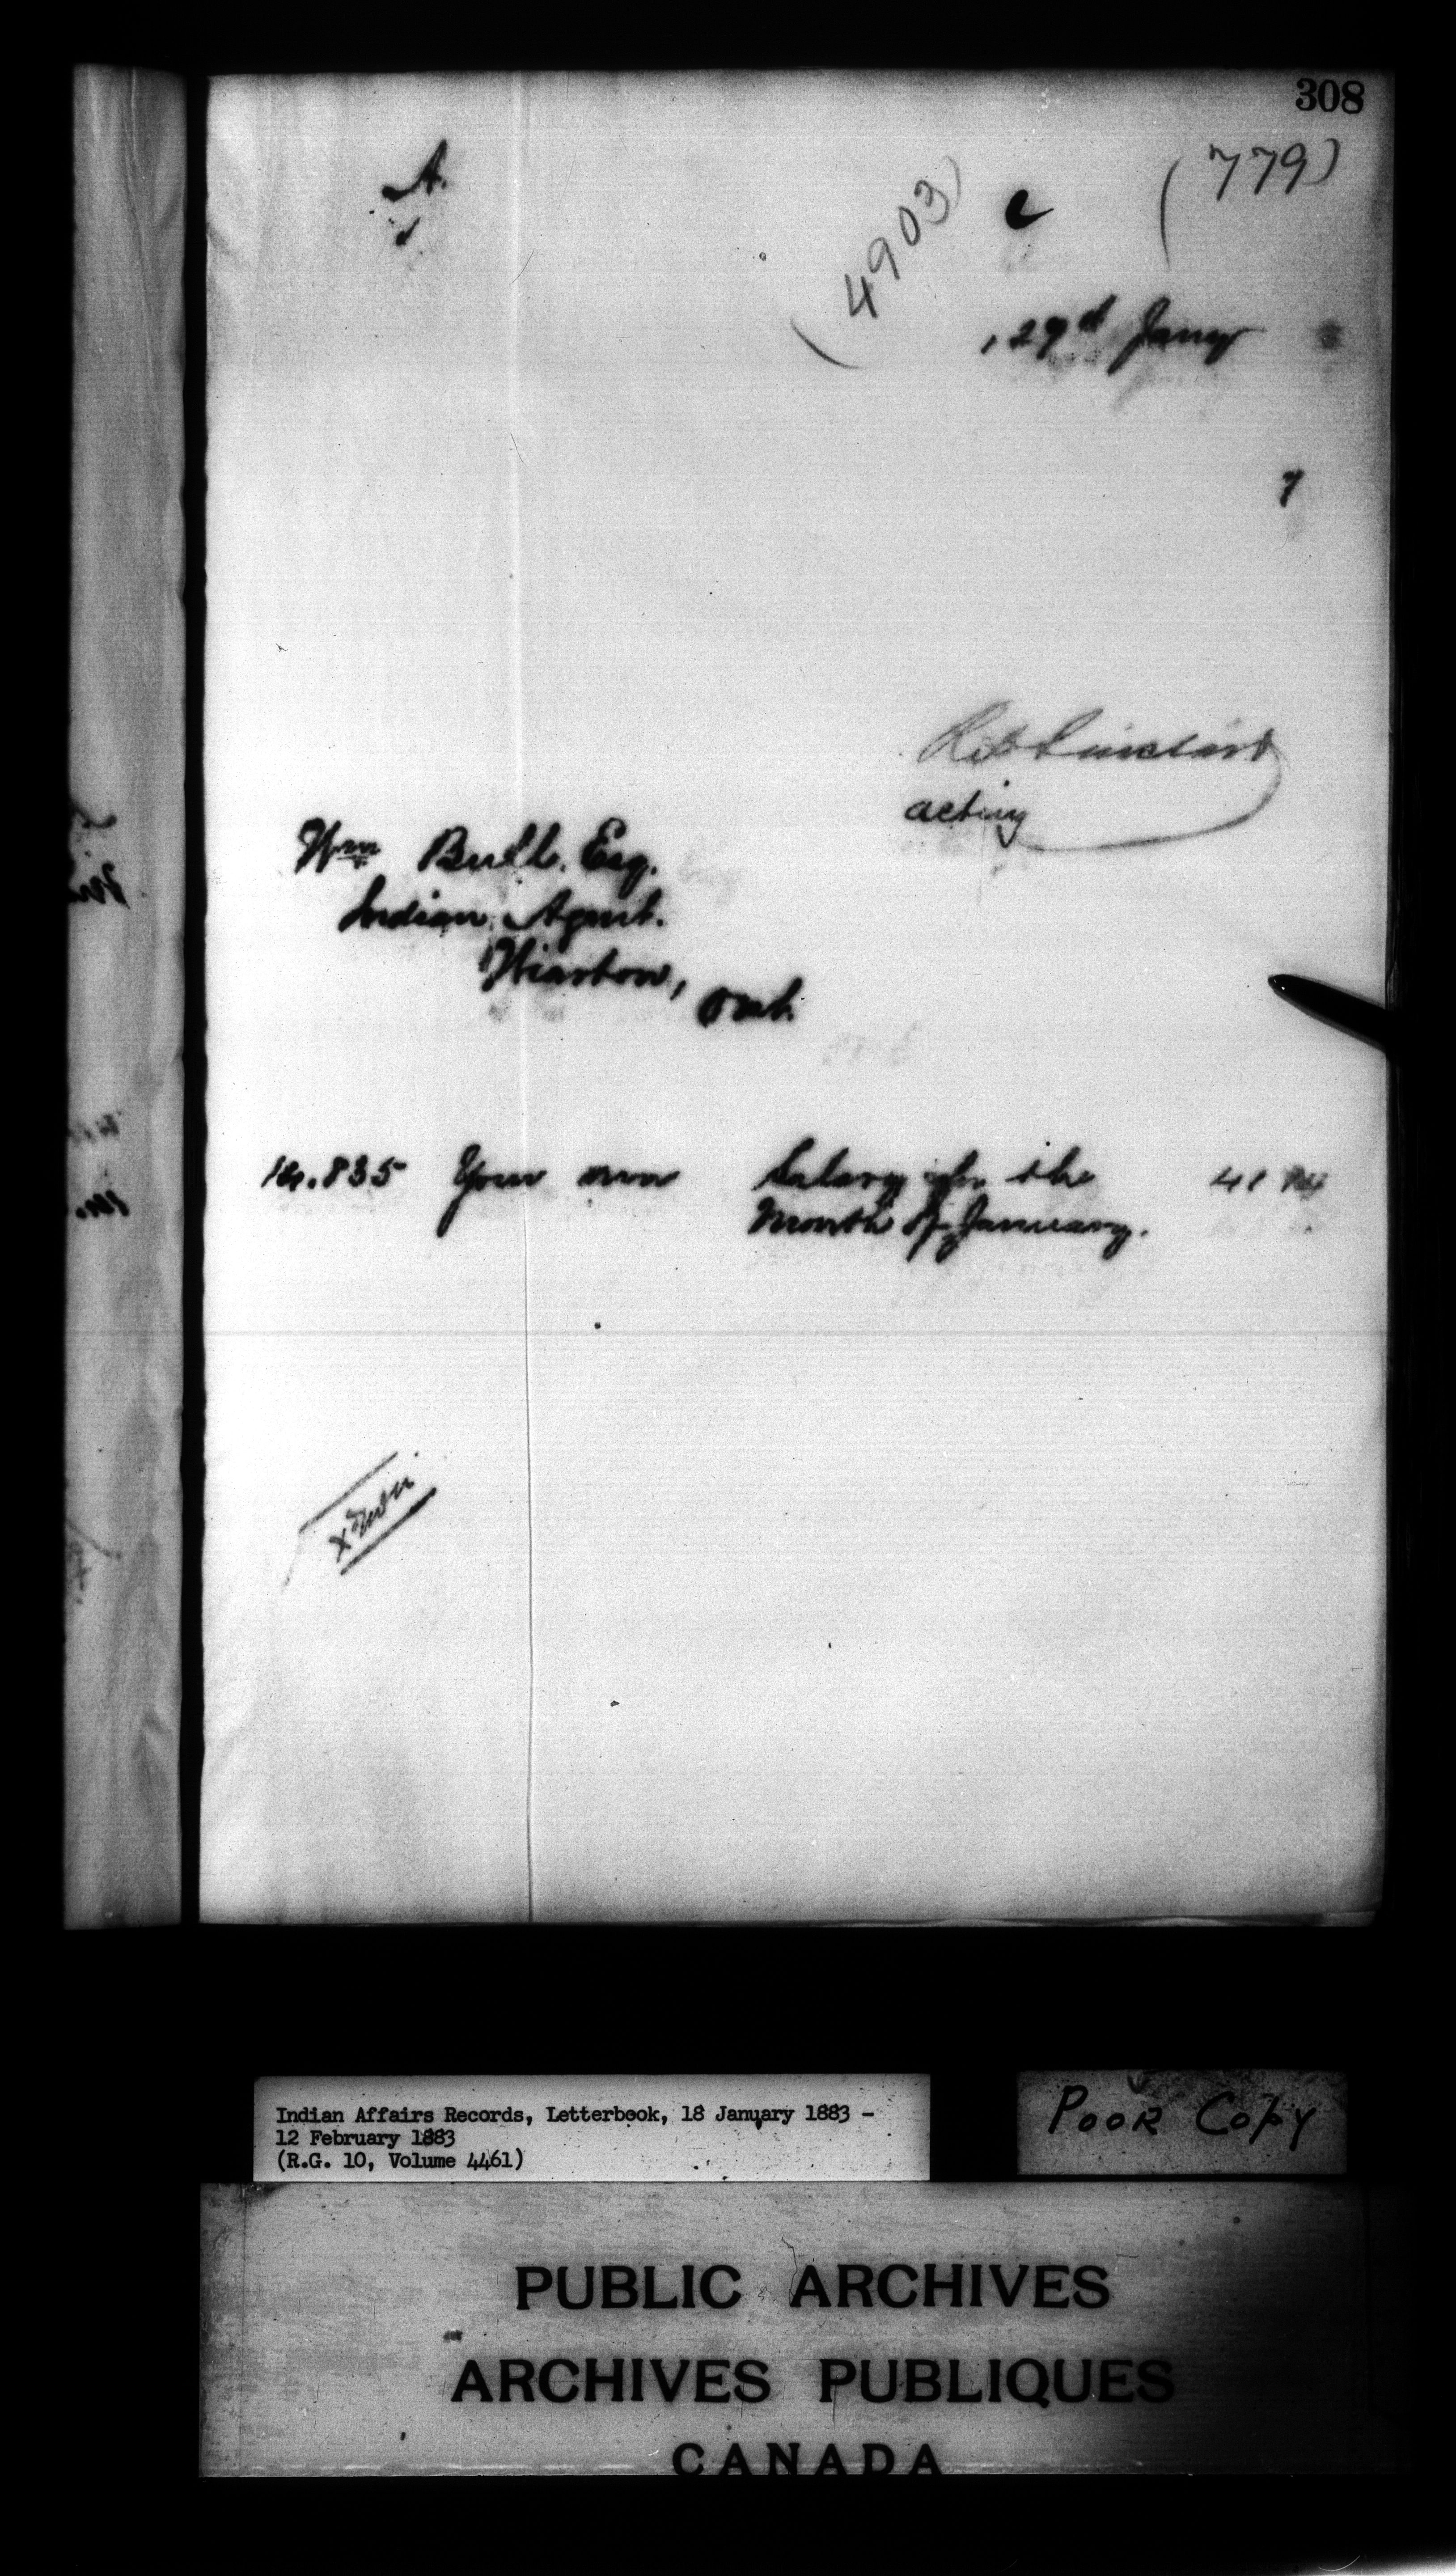 308
A.
(4903)
(779)
29th Jany
acting
Wm Bull. Esq.
Indian Agent.
Wiarton, Ont.
835 Your own Salary for the 41
Month of January.
Indian Affairs Records, Letterbook, 18 January 1883 -
12 February 1883
(R.G. 10, Volume 4461)
POOR COPY
PUBLIC ARCHIVES
ARCHIVES PUBLIQUES
CANADA